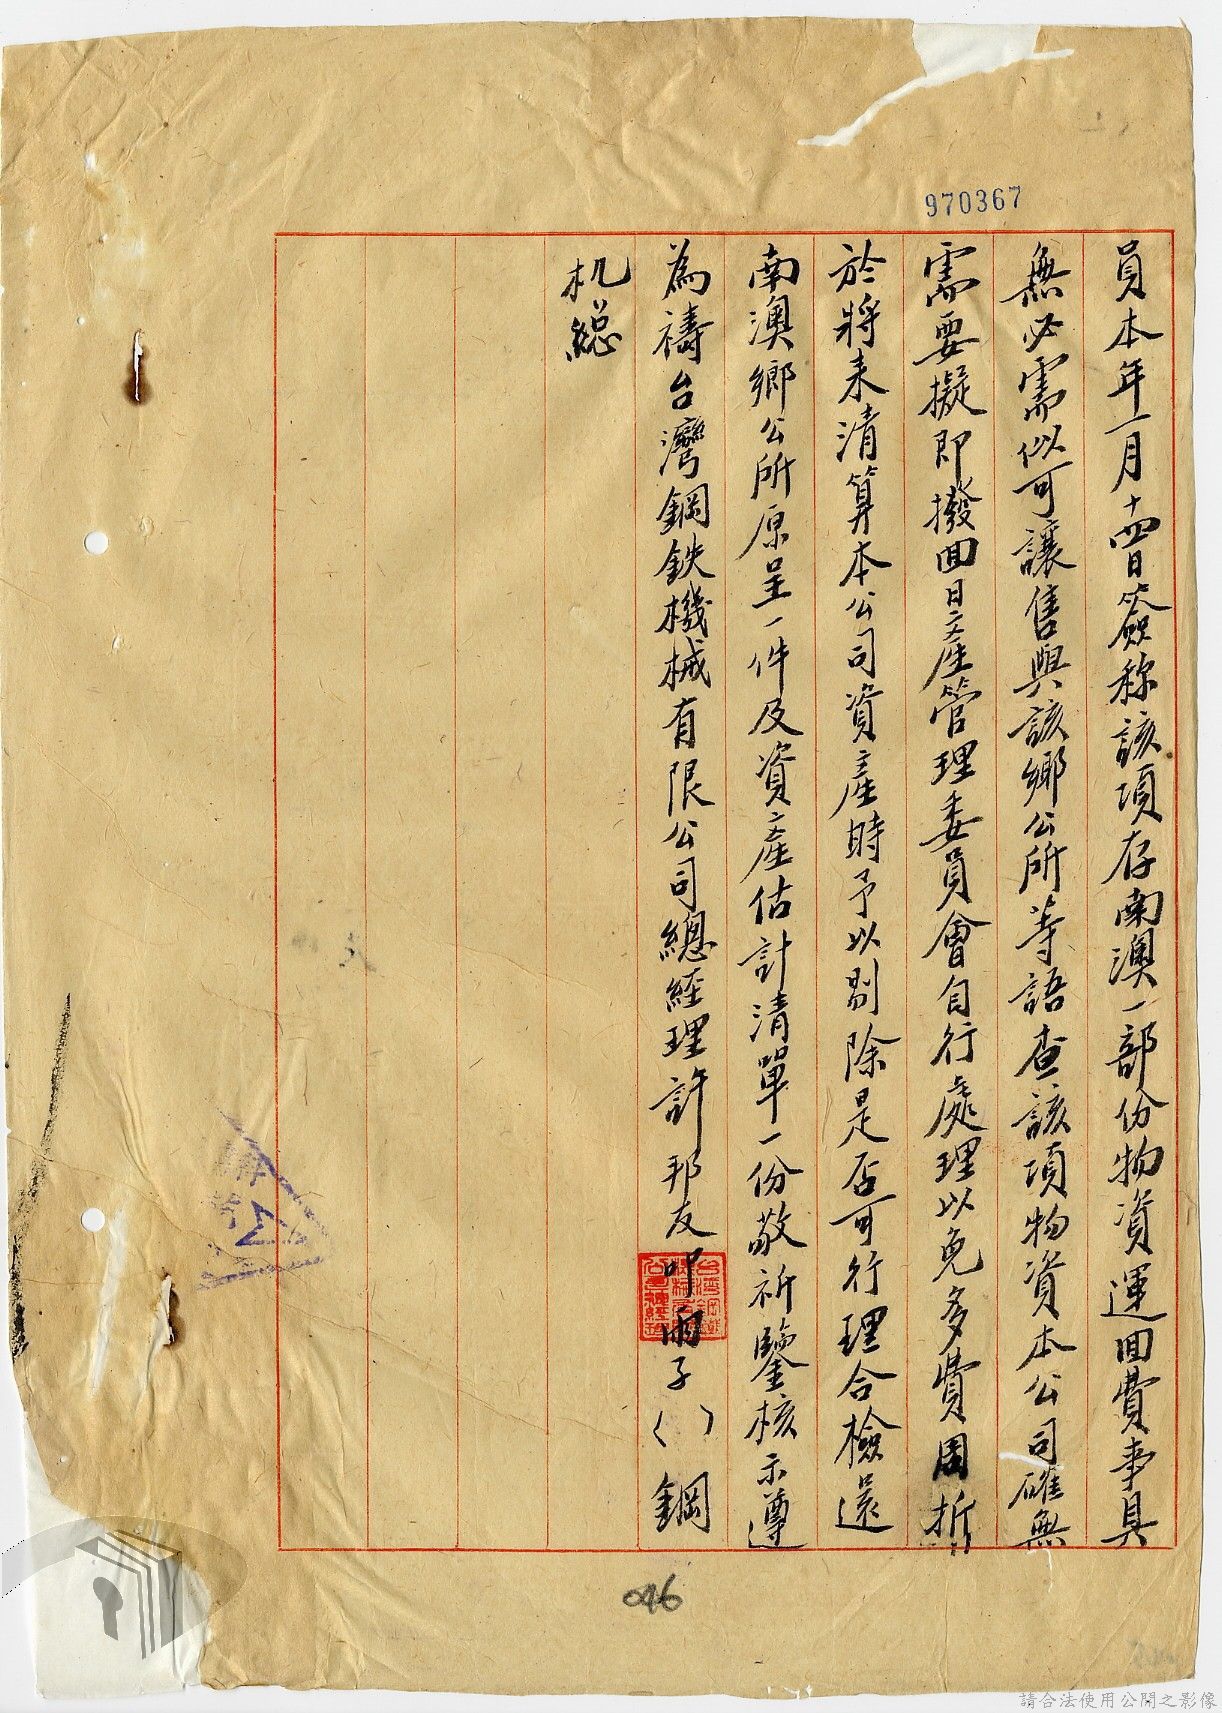 970367
員本年一月十四日簽称該項存南澳一部份物資運回費事具
無必需似可讓售與該鄉公所等語查該項物資本公司確無
需要擬即撥回日產管理委員會自行處理以免多費周折
於將来清算本公司資產時予以剔除是否可行理合檢還
南澳鄉公所原呈一件及資產估計清單一份敬祈鑒核示遵
為禱台灣鋼鉄機械有限公司總経理許邦友叩 子( )鋼
机総
046
請合法使用公開之影像